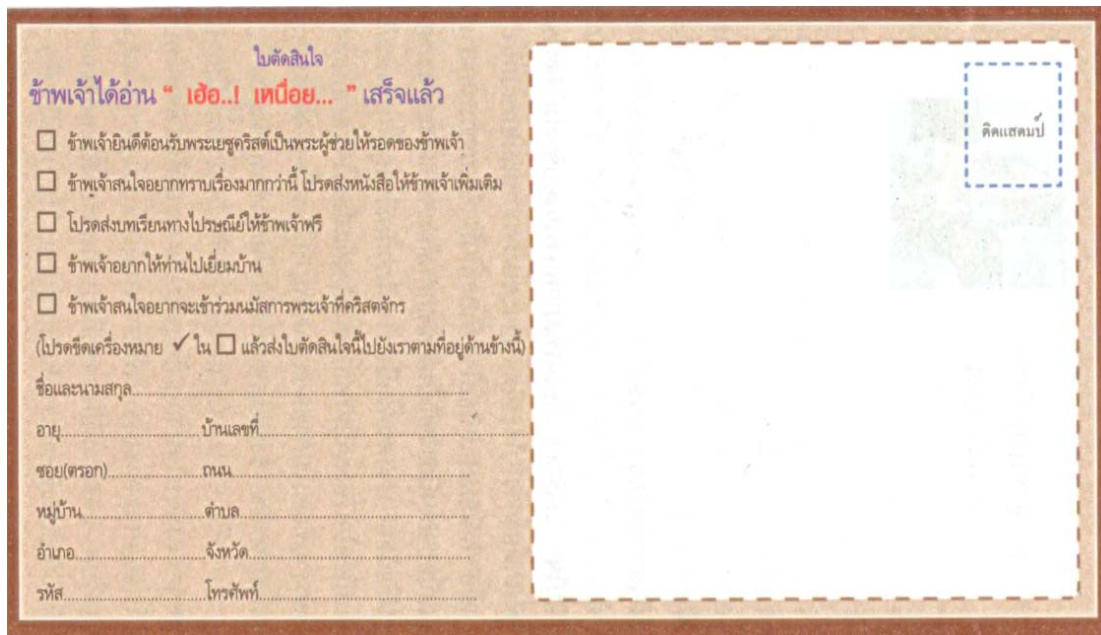 ใบตัดสินใจ
ข้าพเจ้าได้อ่าน “ เฮ้อ..! เหนื่อย... ” เสร็จแล้ว
☐ ข้าพเจ้ายินดีต้อนรับพระเยซูคริสต์เป็นพระผู้ช่วยให้รอดของข้าพเจ้า
☐ ข้าพเจ้าสนใจอยากทราบเรื่องมากกว่านี้ โปรดส่งหนังสือให้ข้าพเจ้าเพิ่มเติม
☐ โปรดส่งบทเรียนทางไปรษณีย์ให้ข้าพเจ้าฟรี
☐ ข้าพเจ้าอยากให้ท่านไปเยี่ยมบ้าน
☐ ข้าพเจ้าสนใจอยากจะเข้าร่วมนมัสการพระเจ้าที่คริสตจักร
(โปรดขีดเครื่องหมาย ✓ ใน ☐ แล้วส่งใบตัดสินใจนี้ไปยังเราตามที่อยู่ด้านข้างนี้)
ชื่อและนามสกุล..........
อายุ..........บ้านเลขที่..........
ซอย(ตรอก)..........ถนน..........
หมู่บ้าน..........ตำบล..........
อำเภอ..........จังหวัด..........
รหัส..........โทรศัพท์..........
ติดแสตมป์